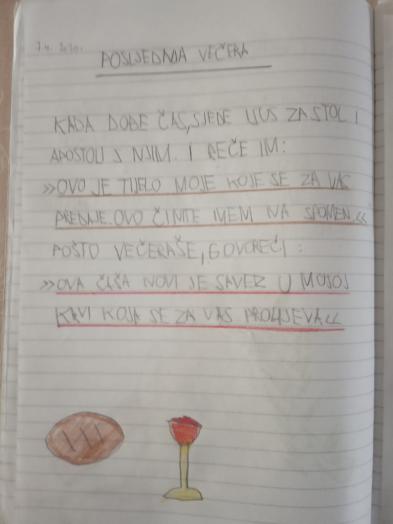 7.4. 2020.
POSLJEDNJA VEČERA
KADA DOĐE ČAS, SJEDE ISUS ZA STOL I
APOSTOLI S NJIM. I REČE IM:
»OVO JE TIJELO MOJE KOJE SE ZA VAS
PREDAJE. OVO ČINITE MENI NA SPOMEN.«
POŠTO VEČERAŠE, GOVOREĆI:
»OVA ČAŠA NOVI JE SAVEZ U MOJOJ
KRVI KOJA SE ZA VAS PROLIJEVA«